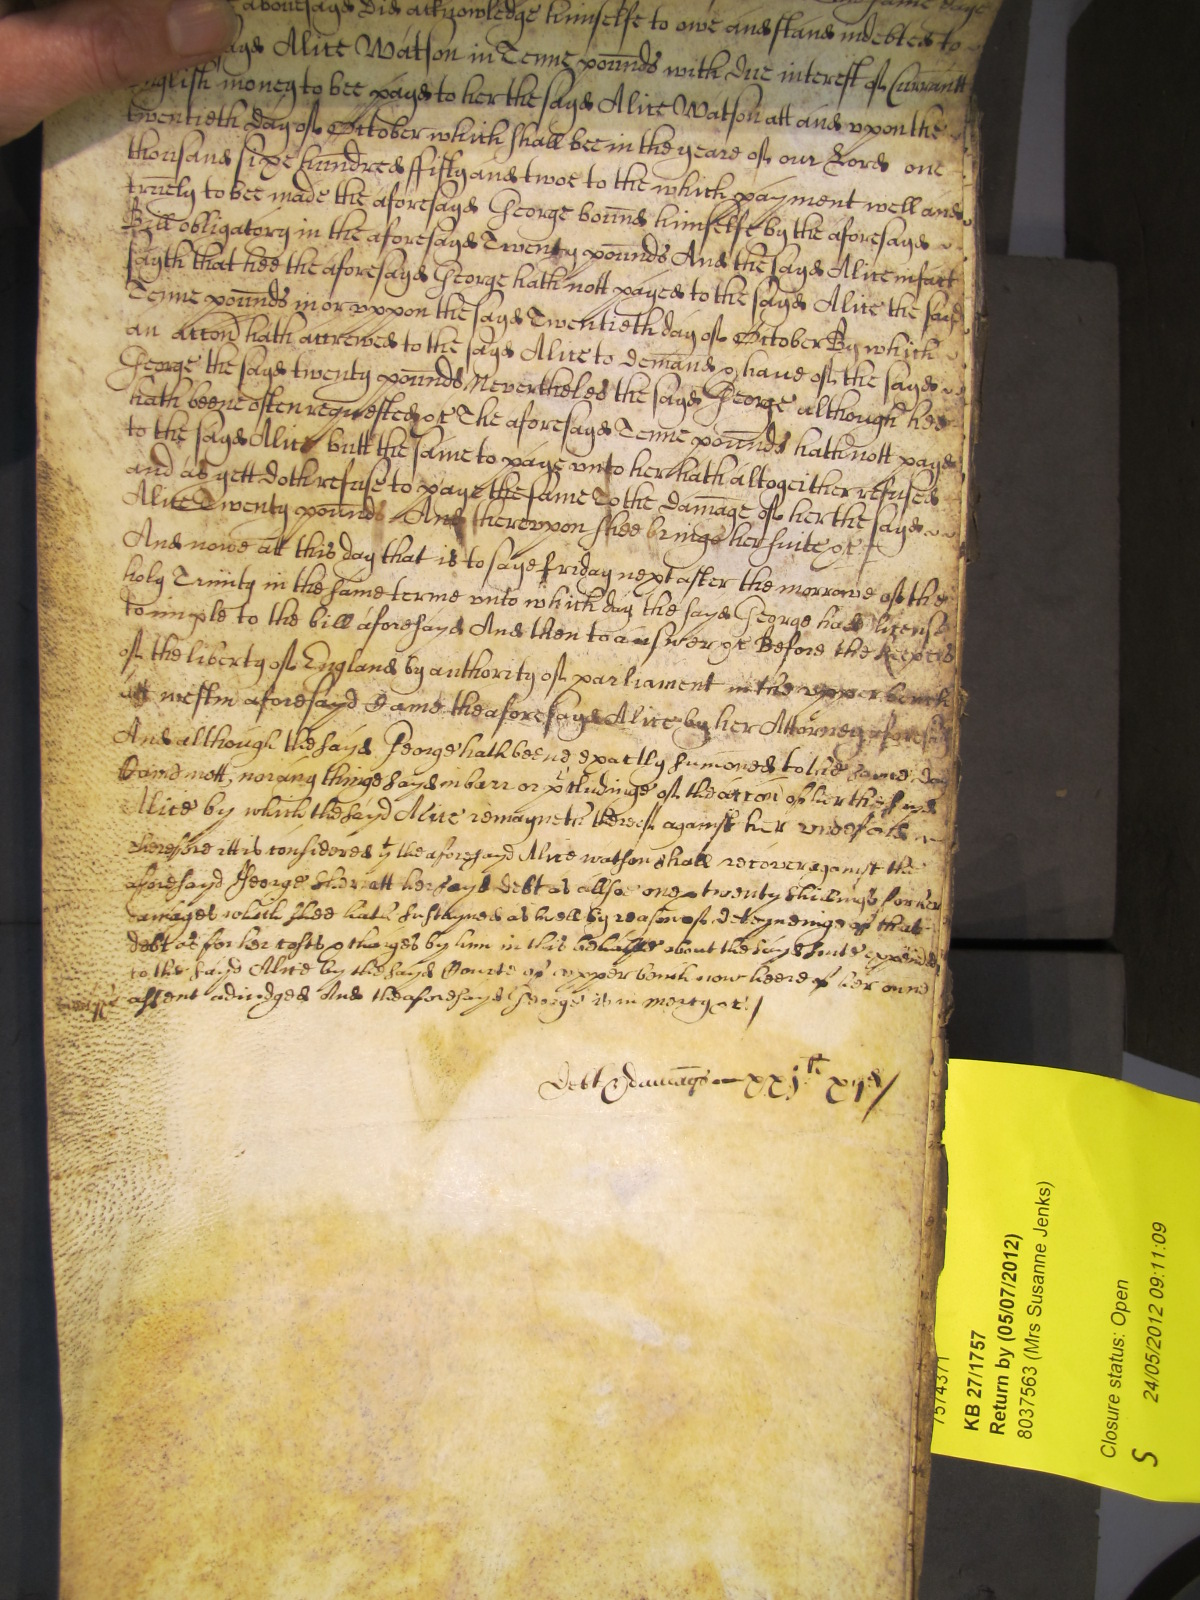 abovesayd did acknowledge himselfe to owe and stand indebted to
Alice Watson in Tenne pounds with due interest of Currantt
English money to bee payd to her the sayd Alice Watson att and vpon the
twentieth day of October which shall bee in the yeare of our Lord one
thousand sixe hundred ffifty and twoe to the which payment well and
truely to bee made the aforesayd George bound himselfe by the aforesayd
Bill obligatory in the aforesayd Twenty pounds And the sayd Alice in fact
sayth that hee the aforesayd George hath nott payed to the sayd Alice the said
Tenne pounds in or vppon the sayd Twentieth day of October By which
an accon hath accrewed to the sayd Alice to demand & haue of the sayd
George the sayd twenty pounds Neverthelesse the sayd George although hee
hath beene often requested &c The aforesayd Tenne pounds hath nott payd
to the sayd Alice butt the same to paye vnto her hath altogeither refused
and as yett doth refuse to paye the same To the damage of her the sayd
Alice Twenty pounds And therevpon shee brings her suite &c
And nowe att this day that is to saye ffriday next after the morrowe of the
holy Trinity in the same terme vnto which day the sayd George had license
to imple to the bill aforesayd And then to answer &c Before the keepers
of the liberty of England by authority of parliament in the vpper bench
att westm aforesayd Came the aforesayd Alice by her Attorney aforesayd
And although the sayd George hath beene exactly sumoned to the same day
Came nott, nor any thinge sayd in barr or p'cludinge of the accon of her the sayd
Alice by which the sayd Alice remayneth thereof against her vndefended
therefore itt is considered yt the aforesayd Alice watson shall recover against the
aforesayd George Sherratt her sayd debt as allsoe one & twenty shillings for her
damages which shee hath sustayned as well by reason of deteyneinge of that
debt as for her costs & charges by him in this behalfe about the sayd suite expended
to the sayd Alice by the sayd Courte of vpper bench now heere of her owne
assent adiudged And the aforesayd George is in mercy &c /
Debt & damags xxjli xijd /
KB 27/1757
Return by (05/07/2012)
8037563 (Mrs Susanne Jenks)
Closure status: Open
S 24/05/2012 09:11:09